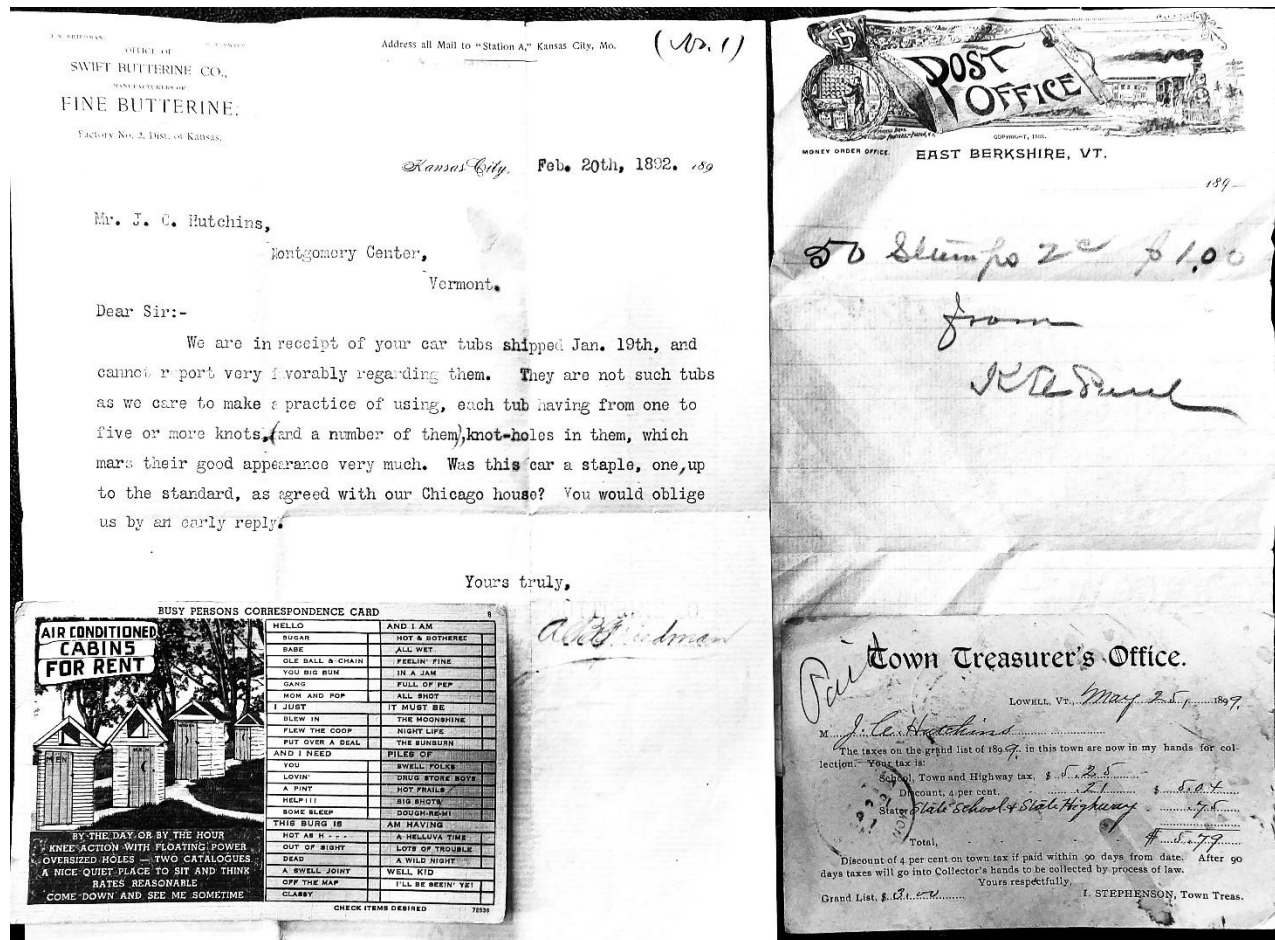 OFFICE OF
SWIFT BUTTERINE CO.,
MANUFACTURERS OF
FINE BUTTERINE.
Factory No. 2, Dist. of Kansas.
Address all Mail to "Station A," Kansas City, Mo.
(No. 1)
Kansas City, Feb. 20th, 1892. 189
Mr. J. C. Hutchins,
Montgomery Center,
Vermont.
Dear Sir:-
We are in receipt of your car tubs shipped Jan. 19th, and
cannot report very favorably regarding them. They are not such tubs
as we care to make a practice of using, each tub having from one to
five or more knots,(and a number of them),knot-holes in them, which
mars their good appearance very much. Was this car a staple, one,up
to the standard, as agreed with our Chicago house? You would oblige
us by an early reply.
Yours truly,
Friedman
BUSY PERSONS CORRESPONDENCE CARD
8
AIR CONDITIONED
CABINS
FOR RENT
MEN
BY THE DAY OR BY THE HOUR
KNEE ACTION WITH FLOATING POWER
OVERSIZED HOLES — TWO CATALOGUES
A NICE QUIET PLACE TO SIT AND THINK
RATES REASONABLE
COME DOWN AND SEE ME SOMETIME
HELLO AND I AM
SUGAR HOT & BOTHERED
BABE ALL WET
OLE BALL & CHAIN FEELIN' FINE
YOU BIG BUM IN A JAM
GANG FULL OF PEP
MOM AND POP ALL SHOT
I JUST IT MUST BE
BLEW IN THE MOONSHINE
FLEW THE COOP NIGHT LIFE
PUT OVER A DEAL THE SUNBURN
AND I NEED PILES OF
YOU SWELL FOLKS
LOVIN' DRUG STORE BOYS
A PINT HOT FRAILS
HELP!!! BIG SHOTS
SOME SLEEP DOUGH-RE-MI
THIS BURG IS AM HAVING
HOT AS H - - - A HELLUVA TIME
OUT OF SIGHT LOTS OF TROUBLE
DEAD A WILD NIGHT
A SWELL JOINT WELL KID
OFF THE MAP I'LL BE SEEIN' YE!
CLASSY
CHECK ITEMS DESIRED
72536
POST
OFFICE
MONEY ORDER OFFICE.
EAST BERKSHIRE, VT.
189
50 Stamps 2c $1.00
from
Paid
Town Treasurer's Office.
LOWELL, VT., May 25, 1899.
M J. C. Hutchins
The taxes on the grand list of 1899. in this town are now in my hands for col-
lection. Your tax is:
School, Town and Highway tax, $ 5.25
Discount, 4 per cent, .21 $ 5.04
State, State School & State Highway .75
Total, $ 5.79
Discount of 4 per cent on town tax if paid within 90 days from date. After 90
days taxes will go into Collector's hands to be collected by process of law.
Yours respectfully,
Grand List, $ 3.00 I. STEPHENSON, Town Treas.